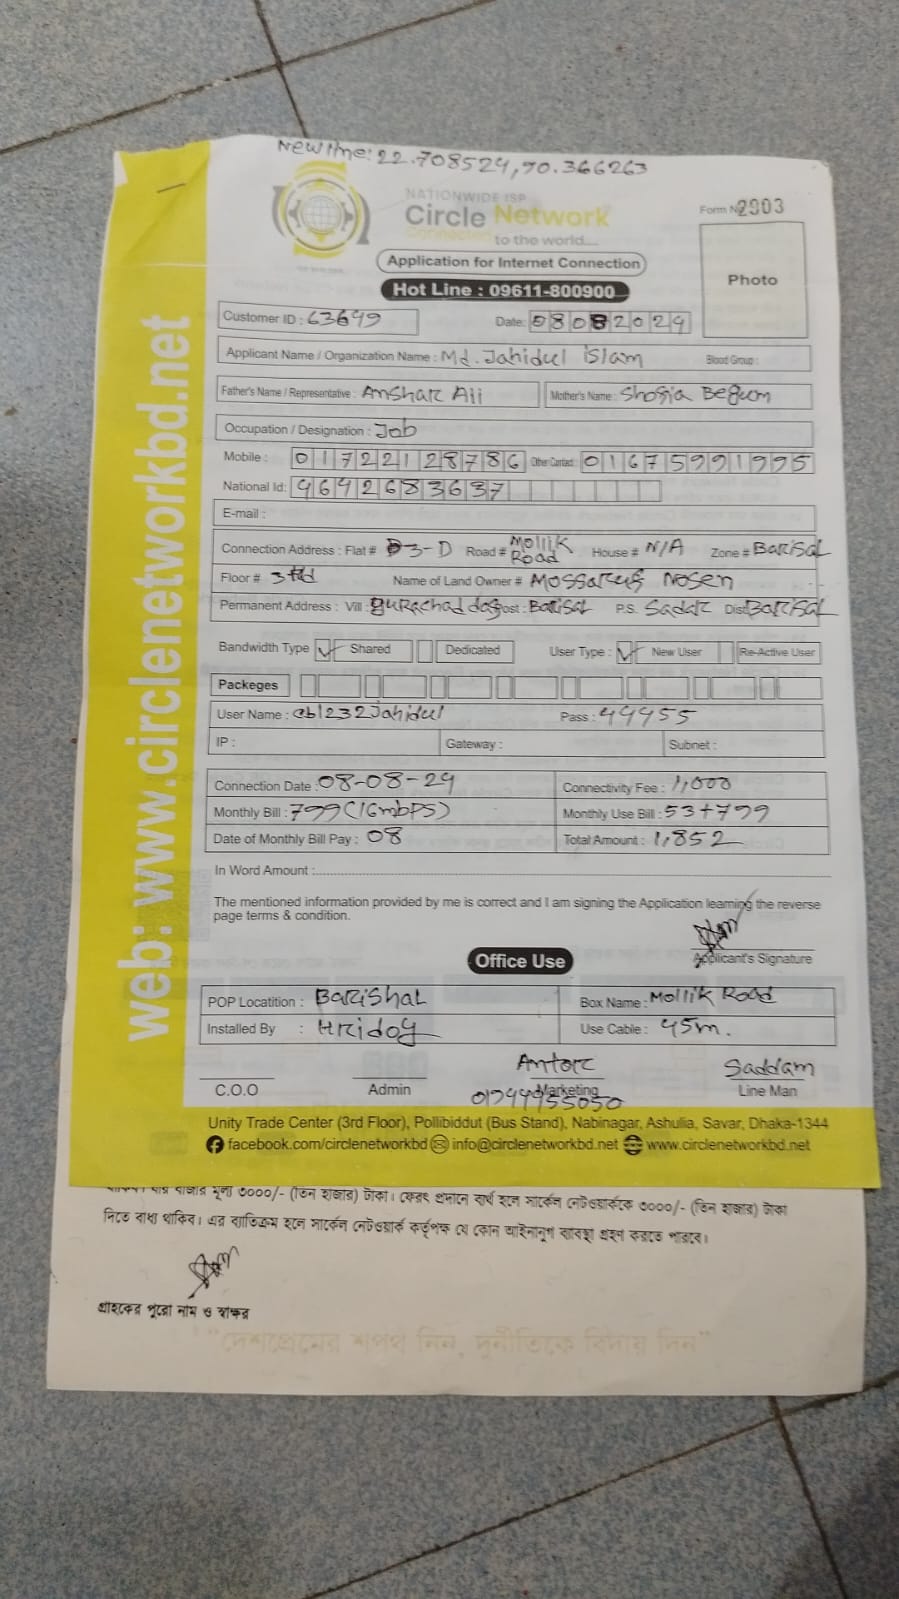 New line: 22.708524, 90.366263
NATIONWIDE ISP
Circle Network
Connected to the world....
Form No 2903
Application for Internet Connection
Photo
Hot Line : 09611-800900
Customer ID : 63649 Date: 08082024
Applicant Name / Organization Name : Md. Jahidul islam Blood Group :
Father's Name / Representative : Anshar Ali Mother's Name : Begum
Occupation / Designation : Job
Mobile : 01722128786 Other Contact: 01675991995
National Id: 4642683637
E-mail :
Connection Address : Flat # 3-D Road # Mollik Road House # N/A Zone # Barisal
Floor # 3rd Name of Land Owner # Hosen
Permanent Address : Vill : Post : Barisal P.S. Sadar Dist: Barisal
Bandwidth Type ✓ Shared Dedicated User Type : ✓ New User Re-Active User
Packeges
User Name : cbl232Jahidul Pass : 44455
IP : Gateway : Subnet :
Connection Date : 08-08-24 Connectivity Fee : 1,000
Monthly Bill : 799 (16mbps) Monthly Use Bill : 53+799
Date of Monthly Bill Pay : 08 Total Amount : 1,852
In Word Amount :
The mentioned information provided by me is correct and I am signing the Application learning the reverse
page terms & condition.
Applicant's Signature
Office Use
POP Locatition : Barishal Box Name : Mollik Road
Installed By : Hridoy Use Cable : 45m.
Antor Saddam
C.O.O Admin Marketing Line Man
01744455050
Unity Trade Center (3rd Floor), Pollibiddut (Bus Stand), Nabinagar, Ashulia, Savar, Dhaka-1344
facebook.com/circlenetworkbd info@circlenetworkbd.net www.circlenetworkbd.net
web: www.circlenetworkbd.net
যার বাজার মূল্য ৩০০০/- (তিন হাজার) টাকা। ফেরৎ প্রদানে ব্যর্থ হলে সার্কেল নেটওয়ার্ককে ৩০০০/- (তিন হাজার) টাকা
দিতে বাধ্য থাকিব। এর ব্যতিক্রম হলে সার্কেল নেটওয়ার্ক কর্তৃপক্ষ যে কোন আইনানুগ ব্যবস্থা গ্রহণ করতে পারবে।
গ্রাহকের পুরো নাম ও স্বাক্ষর
"দেশপ্রেমের শপথ নিন, দুর্নীতিকে বিদায় দিন"